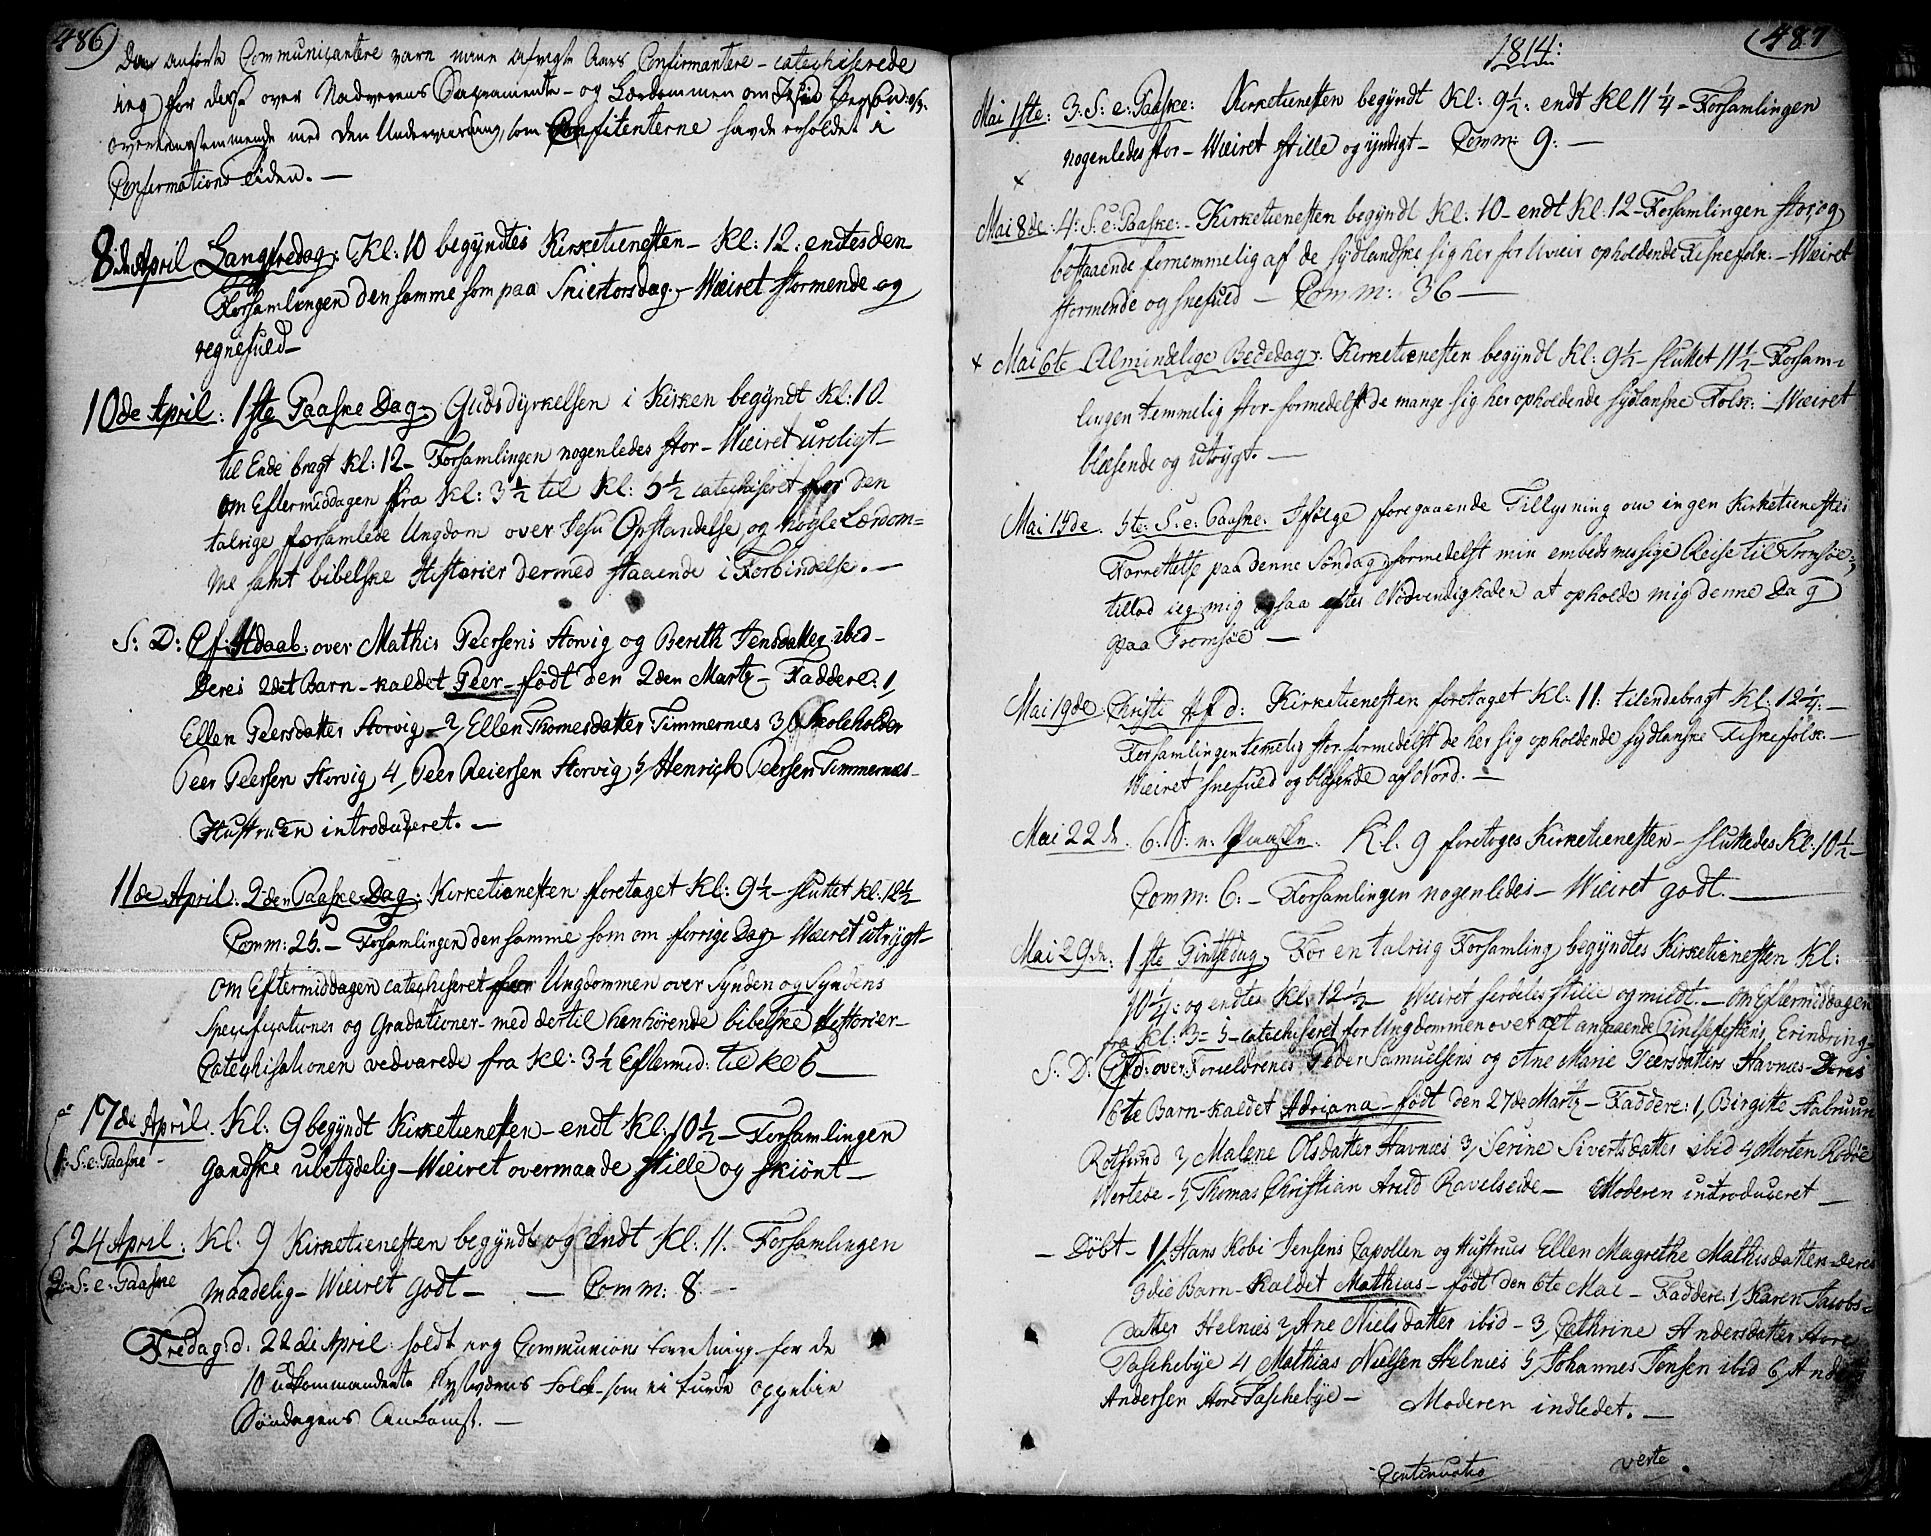 486
Den anførte Communicantere varn naur afvigte Aars Confirmantere - catechiserede
ieg for disse over Nadverens Sacramente - og Lærdommen om Jesu Person &:
overeensstemmende med den Underviisning, som Confitenterne havde erholdet i
Confirmations Tiden. -
8de April Langfredag: Kl: 10 begyndtes Kirketienesten - Kl: 12. endtes den
Forsamlingen den samme som paa Skiertorsdag - Wæiret stormende og
regnefuld -
10de April: 1ste Paaske Dag. Gudsdyrkelsen i Kirken begyndt Kl: 10.
til Ende bragt Kl: 12 - Forsamlingen nogenledes stor - Wæiret uroligt -
om Eftermiddagen fra Kl: 3½ til Kl: 5½ catechiseret for den
talrige forsamlede Ungdom over Jesu Opstandelse og nogle Lærdom=
me samt bibelske Historier dermed staaende i Forbindelse. -
S: D: Cf: Hdaab: over Mathis Peersens Storvig og Berith Jensdatter ibid -
Deres 2det Barn - kaldet Peer - født den 2den Martz - Faddere: 1,
Ellen Peersdatter Storvig - 2, Ellen Thomesdatter Timmernæs 3, Skoleholder
Peer Peersen Storvig 4, Peer Reiersen Storvig 5, Henrich Peersen Timmernæs -
Hustruen introduceret. -
11de April. 2den Paaske Dag: Kirketienesten foretaget Kl: 9½ - sluttet kl: 12½
Comm: 25. - Forsamlingen den samme som om forrige Dag - Wæiret utrygt -
Om Eftermiddagen catechiseret for Ungdommen over Synden og Syndens
Specificationer og Gradationer - med dertil henhørende bibelske Historier -
Catechisationen vedvarede fra Kl: 3½ Eftermid: til kl 5 -
17de April. Kl: 9 begyndt Kirketienesten - endt Kl: 10½ - Forsamlingen
1: S: e: Paaske - gandske ubetydelig - Wæiret overmaade stille og skiønt -
24 April: Kl: 9 Kirketienesten begyndt og endt Kl: 11. Forsamlingen
2: S: e: Paaske maadelig - Wæiret godt - - Comm: 8. -
Fredag d: 22de April holdt ieg Communions forretning for de
10 udkommanderte Folck som ei turde oppebie
Søndagens Ankomst. -
487
1814:
Mai 1ste: 3: S: e: Paaske: Kirketienesten begyndt Kl: 9½: endt Kl 11¼ - Forsamlingen
nogenledes stor - Wæiret stille og yndigt - Comm: 9: -
x
Mai 8de: 4: S: e: Paaske: - Kirketienesten begyndt Kl: 10 - endt Kl: 12 - Forsamlingen stor og
bestaaende fornemmelig af de sydlandske sig her for Uveir opholdende Fiskefolk: - Wæiret
stormende og snefuld - Comm: 36 -
x Mai 6te Almindelige Bededag: Kirketienesten begyndt Kl: 9½ - sluttet 11½ - Forsam=
lingen temmelig stor - formedelst de mange sig her opholdende sydlanske Folk: - Wæiret
blæsende og utrygt. -
Mai 15de. 5te: S: e: Paaske: Ifølge foregaaende Tillysning om ingen Kirketienestes
Forrettelse paa denne Søndag, formedelst min embedsmæssige Reise til Tromsøe;
tillod ieg mig ogsaa efter Nødvendigheden at opholde mig denne Dag
paa Tromsøe -
Mai 19de: Christi Hf: d: Kirketienesten foretaget Kl: 11: tilendebragt Kl: 12¼: -
Forsamlingen temelig stor formedelst de her sig opholdende sydlanske Fiskefolk: -
Wæiret snefuld og blæsende af Nord. -
Mai 22de. 6. S. e. Paaske. Kl. 9 foretoges Kirketienesten - sluttedes Kl: 10½ -
Comm: 6: - Forsamlingen nogenledes - Wæiret godt. -
Mai 29de: 1ste Pintsedag, For en talriig Forsamling begyndtes Kirketienesten Kl:
10¼: og endtes Kl: 12½ - Wæiret særdeles stille og mildt. - Om Eftermiddagen
fra Kl: 3 = 5 - catechiseret for Ungdommen over det angaaende Pintsefestens Erindring -
S: D: Cfd: over Forældrenes Peder Samuelsens og Ane Marie Peersdatters Havnæs - Deres
6te Barn - kaldet Adriana - født den 27de Martz - Faddere: 1, Birgitte Halruun
Rotsund 2, Malene Olsdatter Havnæs 3, Serine Sivertsdatter ibid 4, Morten Rødøe
Wortere - 5, Thomas Christian Arild Ravelseide - Moderen introduceret -
- Døbt - 1, Hans Kobi Jensens Capollen og Hustrues Ellen Magrethe Mathisdatter - deres
3die Barn - Kaldet Mathias - født den 6te Mai - Faddere: 1, Karen Jacobs=
datter Helnæs 2, Ane Nielsdatter ibid - 3, Cathrine Andersdatter Store
Taschebye 4, Mathias Nielsen Helnæs 5, Johannes Jensen ibid 6, Anders
Andersen Store Taschebye - Moderen indledet. -
Continuatio verte.